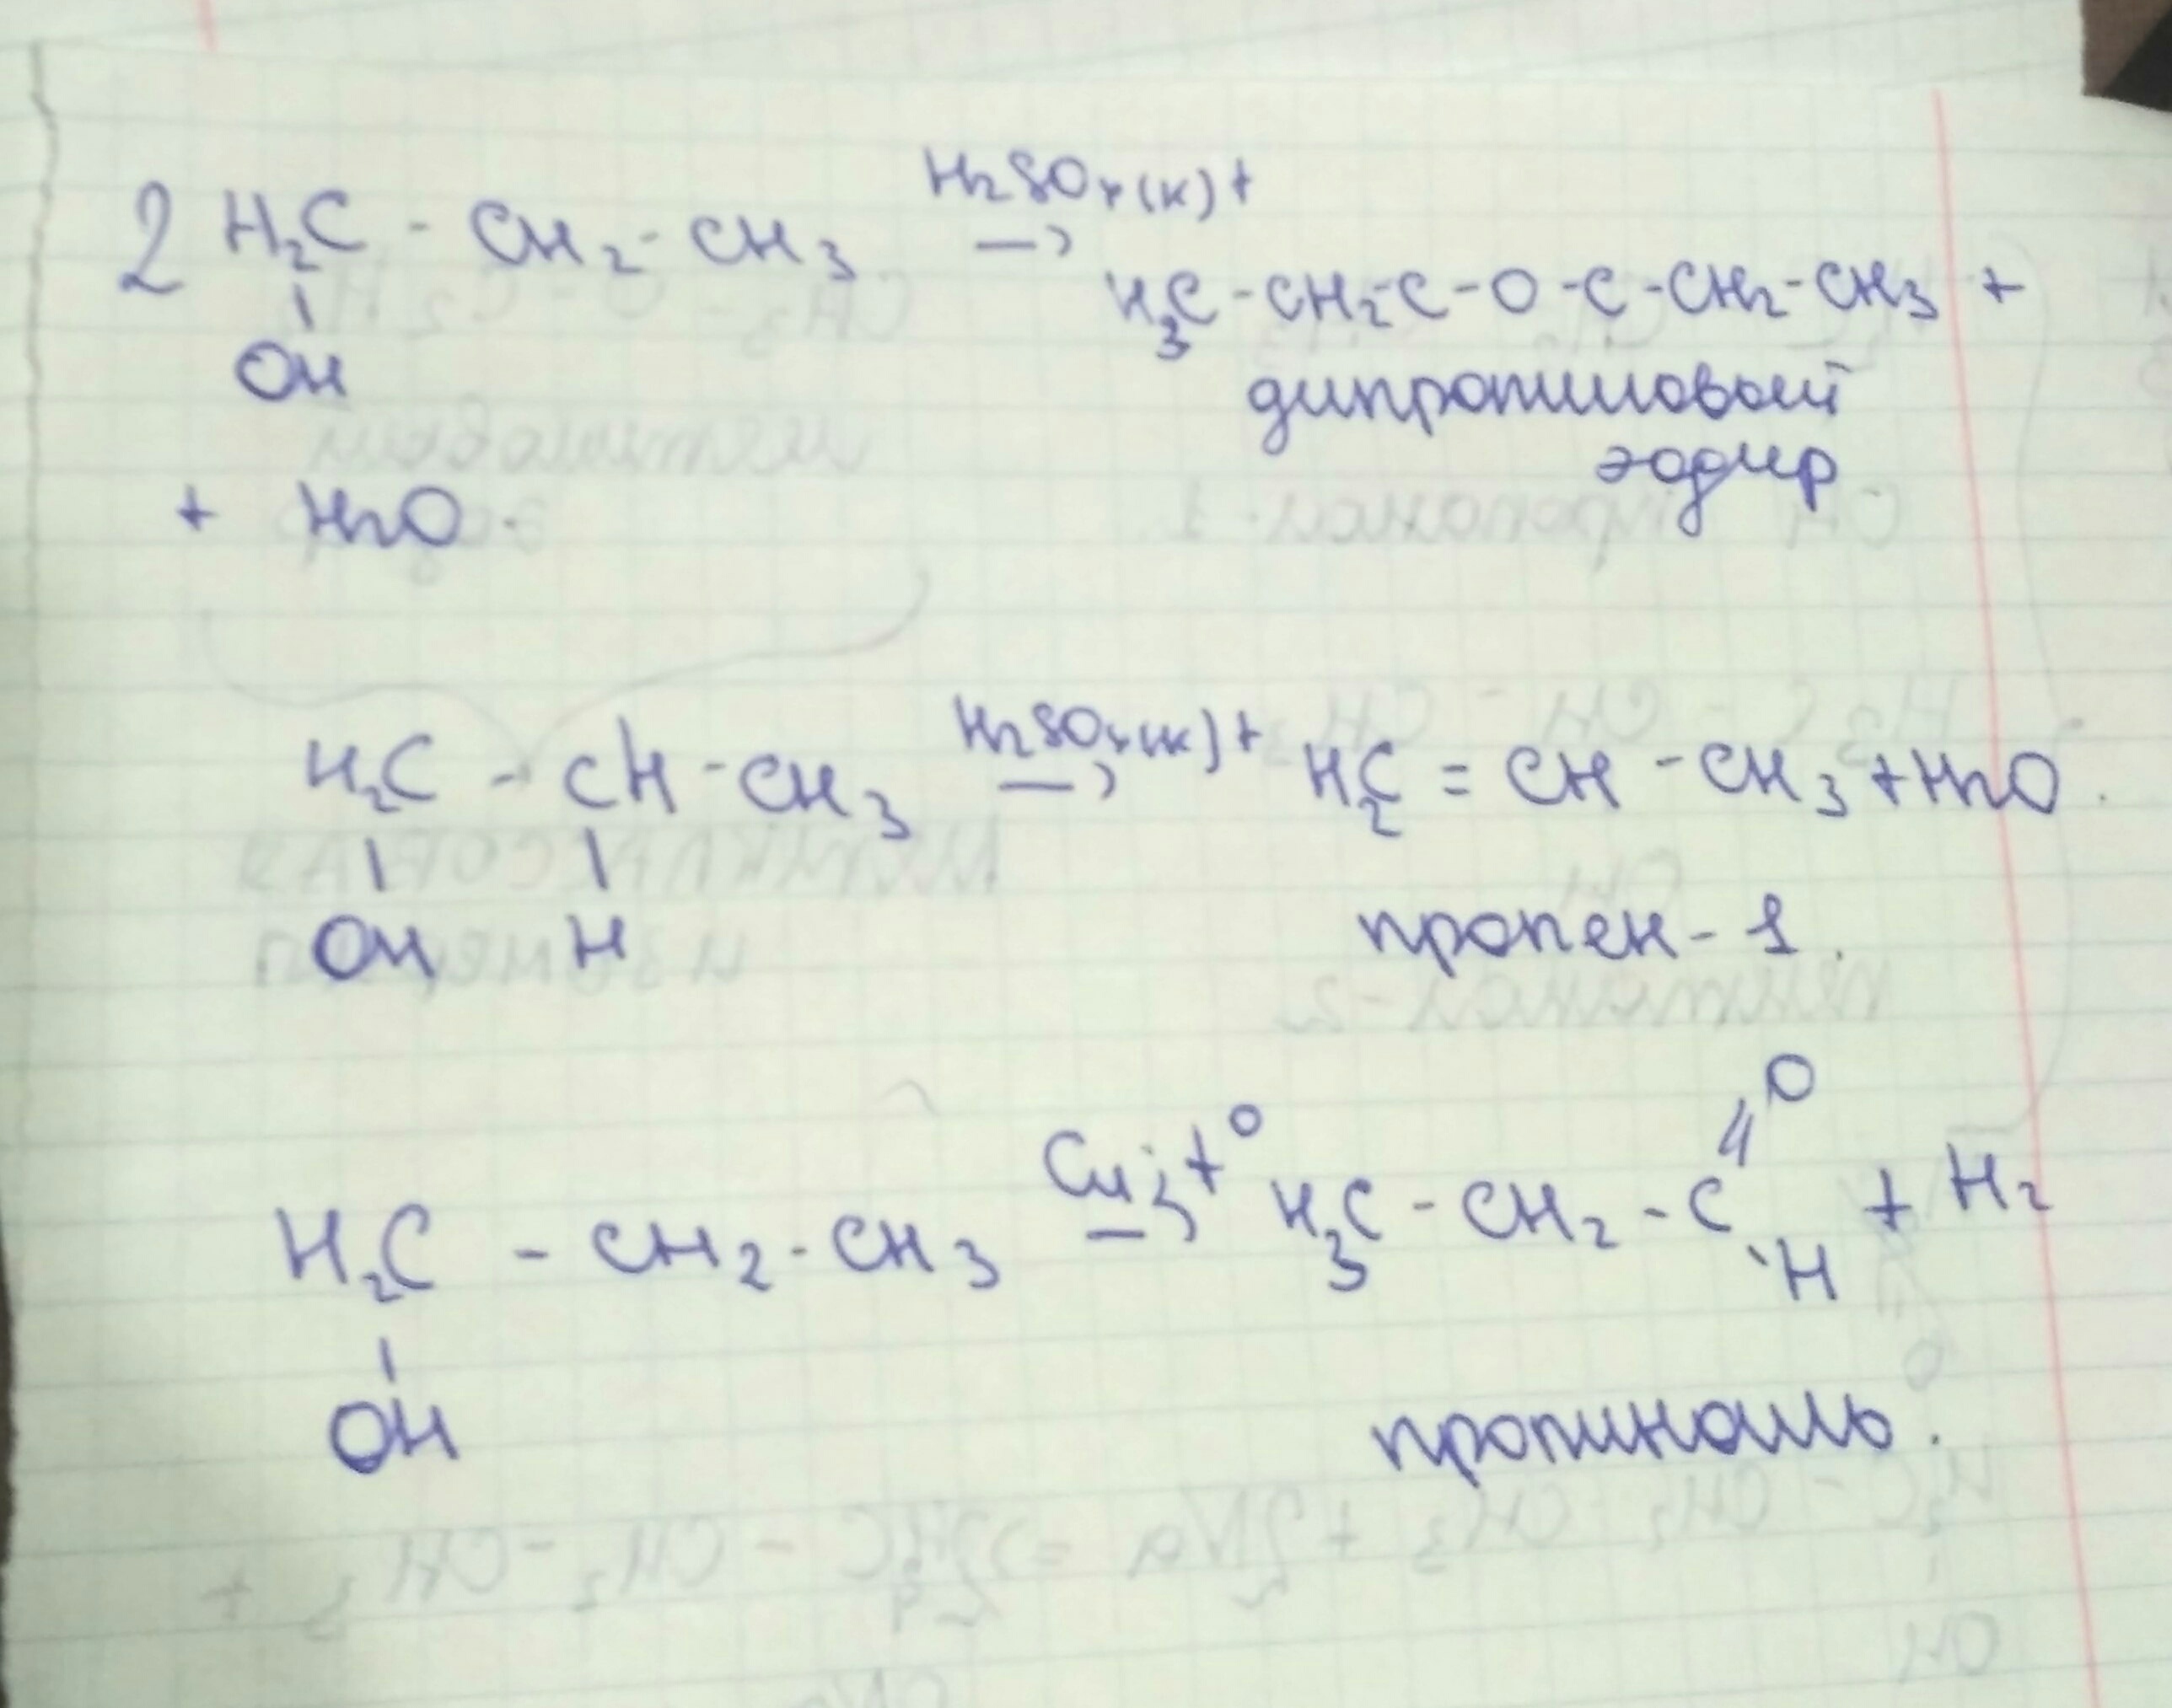 2 H₂C - CH₂ - CH₃ H₂SO₄(к) t →
|
OH
H₃C - CH₂ - C - O - C - CH₂ - CH₃ +
дипропиловый
эфир
+ H₂O.
H₂C - CH - CH₃ H₂SO₄(к) t → H₂C = CH - CH₃ + H₂O.
| |
OH H
пропен-1.
H₂C - CH₂ - CH₃ Cu; t° → H₃C - CH₂ - C =O \H + H₂
|
OH
пропиналь.